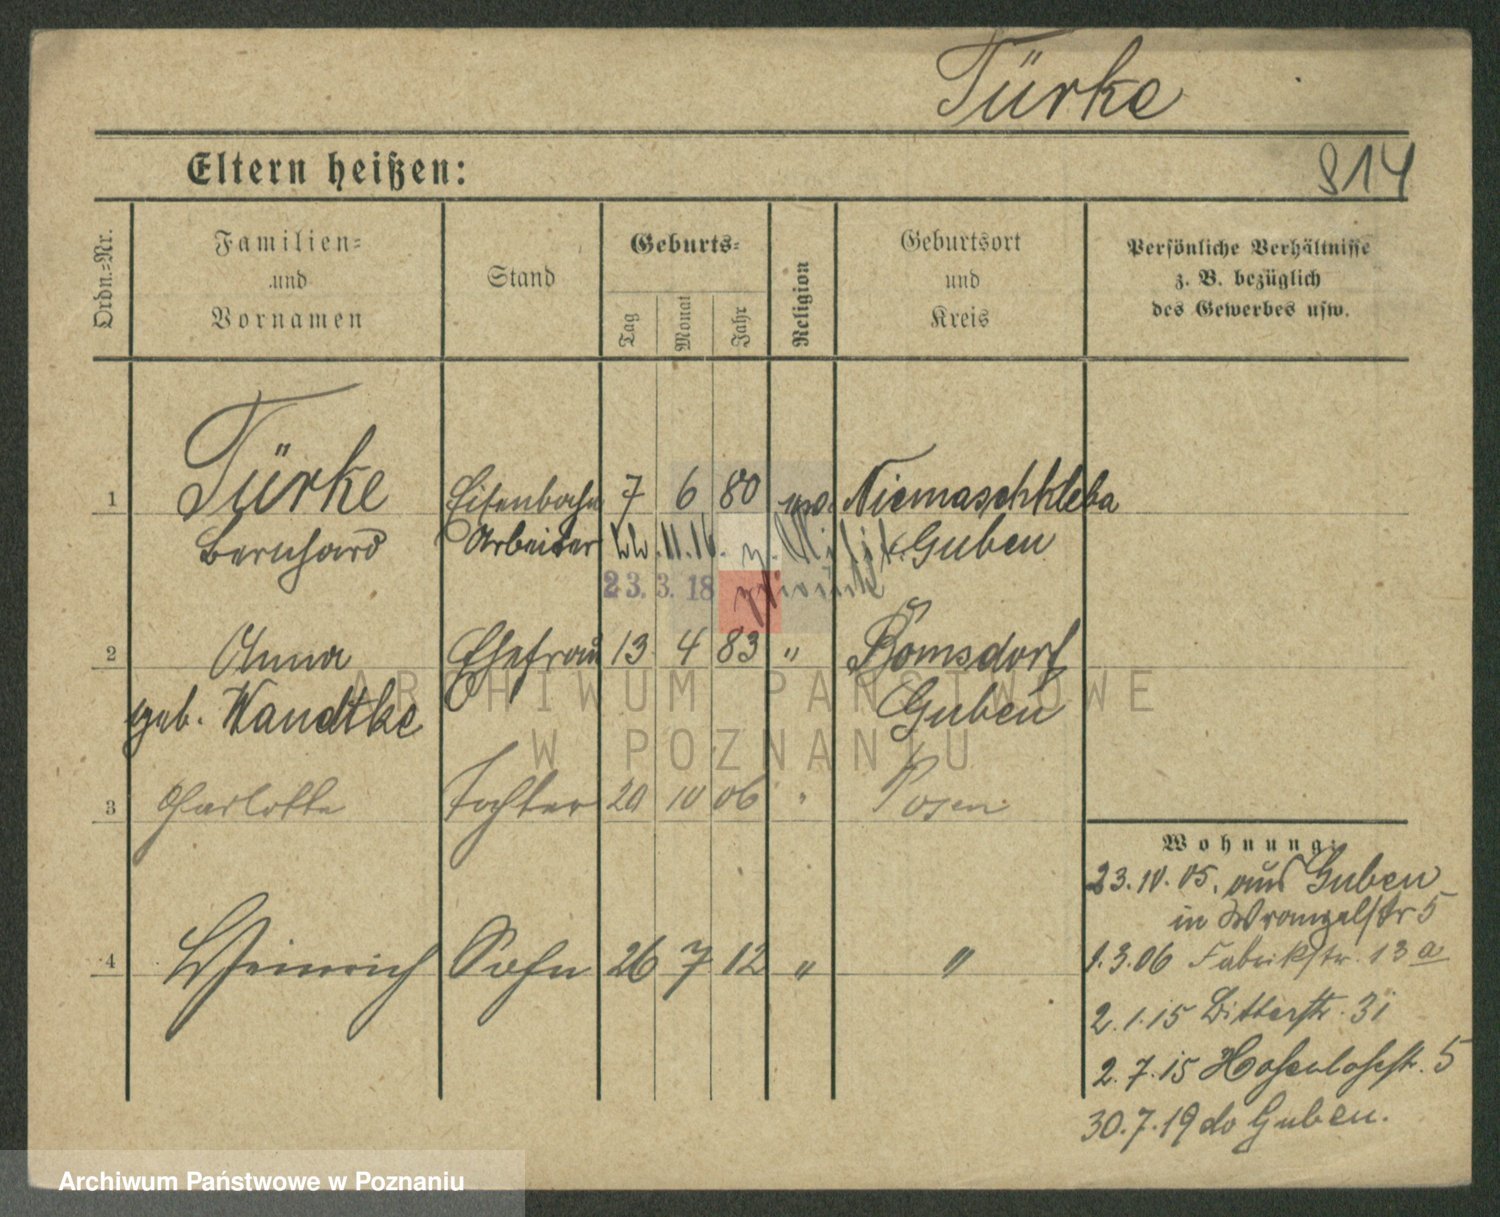 Türke
Eltern heißen:
914
Ordn.=Nr.
Familien=
und
Vornamen
Stand
Geburts=
Tag
Monat
Jahr
Religion
Geburtsort
und
Kreis
Persönliche Verhältnisse
z. B. bezüglich
des Gewerbes usw.
1 Türke Eisenbahn 7 6 80 Niemaschkleba
Bernhard Arbeiter 22.11.16. z. Guben
23. 3. 18
2 Anna Ehefrau 13 4 83 " Bömsdorf
geb. Wandtke Guben
3 Charlotte Tochter 20 10 06 " Posen
Wohnung:
23.10.05. aus Guben
in Wrangelstr 5
4 Heinrich Sohn 26 7 12 " "
1.3.06 Fabrikstr. 13 a
2.1.15 Bitterstr. 31
2.7.15 Hohenlohestr. 5
30.7.19 do Guben.
ARCHIWUM PAŃSTWOWE
W POZNANIU
Archiwum Państwowe w Poznaniu